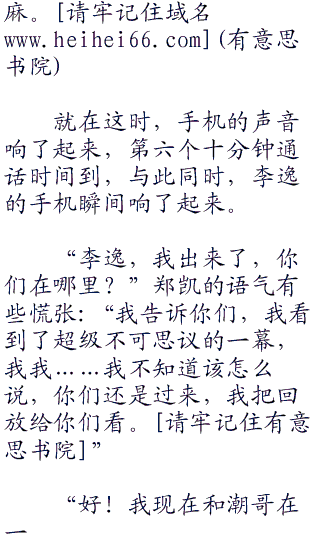 麻。[请牢记住域名
www.heihei66.com](有意思
书院)
就在这时，手机的声音
响了起来，第六个十分钟通
话时间到，与此同时，李逸
的手机瞬间响了起来。
“李逸，我出来了，你
们在哪里？”郑凯的语气有
些慌张：“我告诉你们，我看
到了超级不可思议的一幕，
我我……我不知道该怎么
说，你们还是过来，我把回
放给你们看。[请牢记住有意
思书院]”
“好！我现在和潮哥在
一